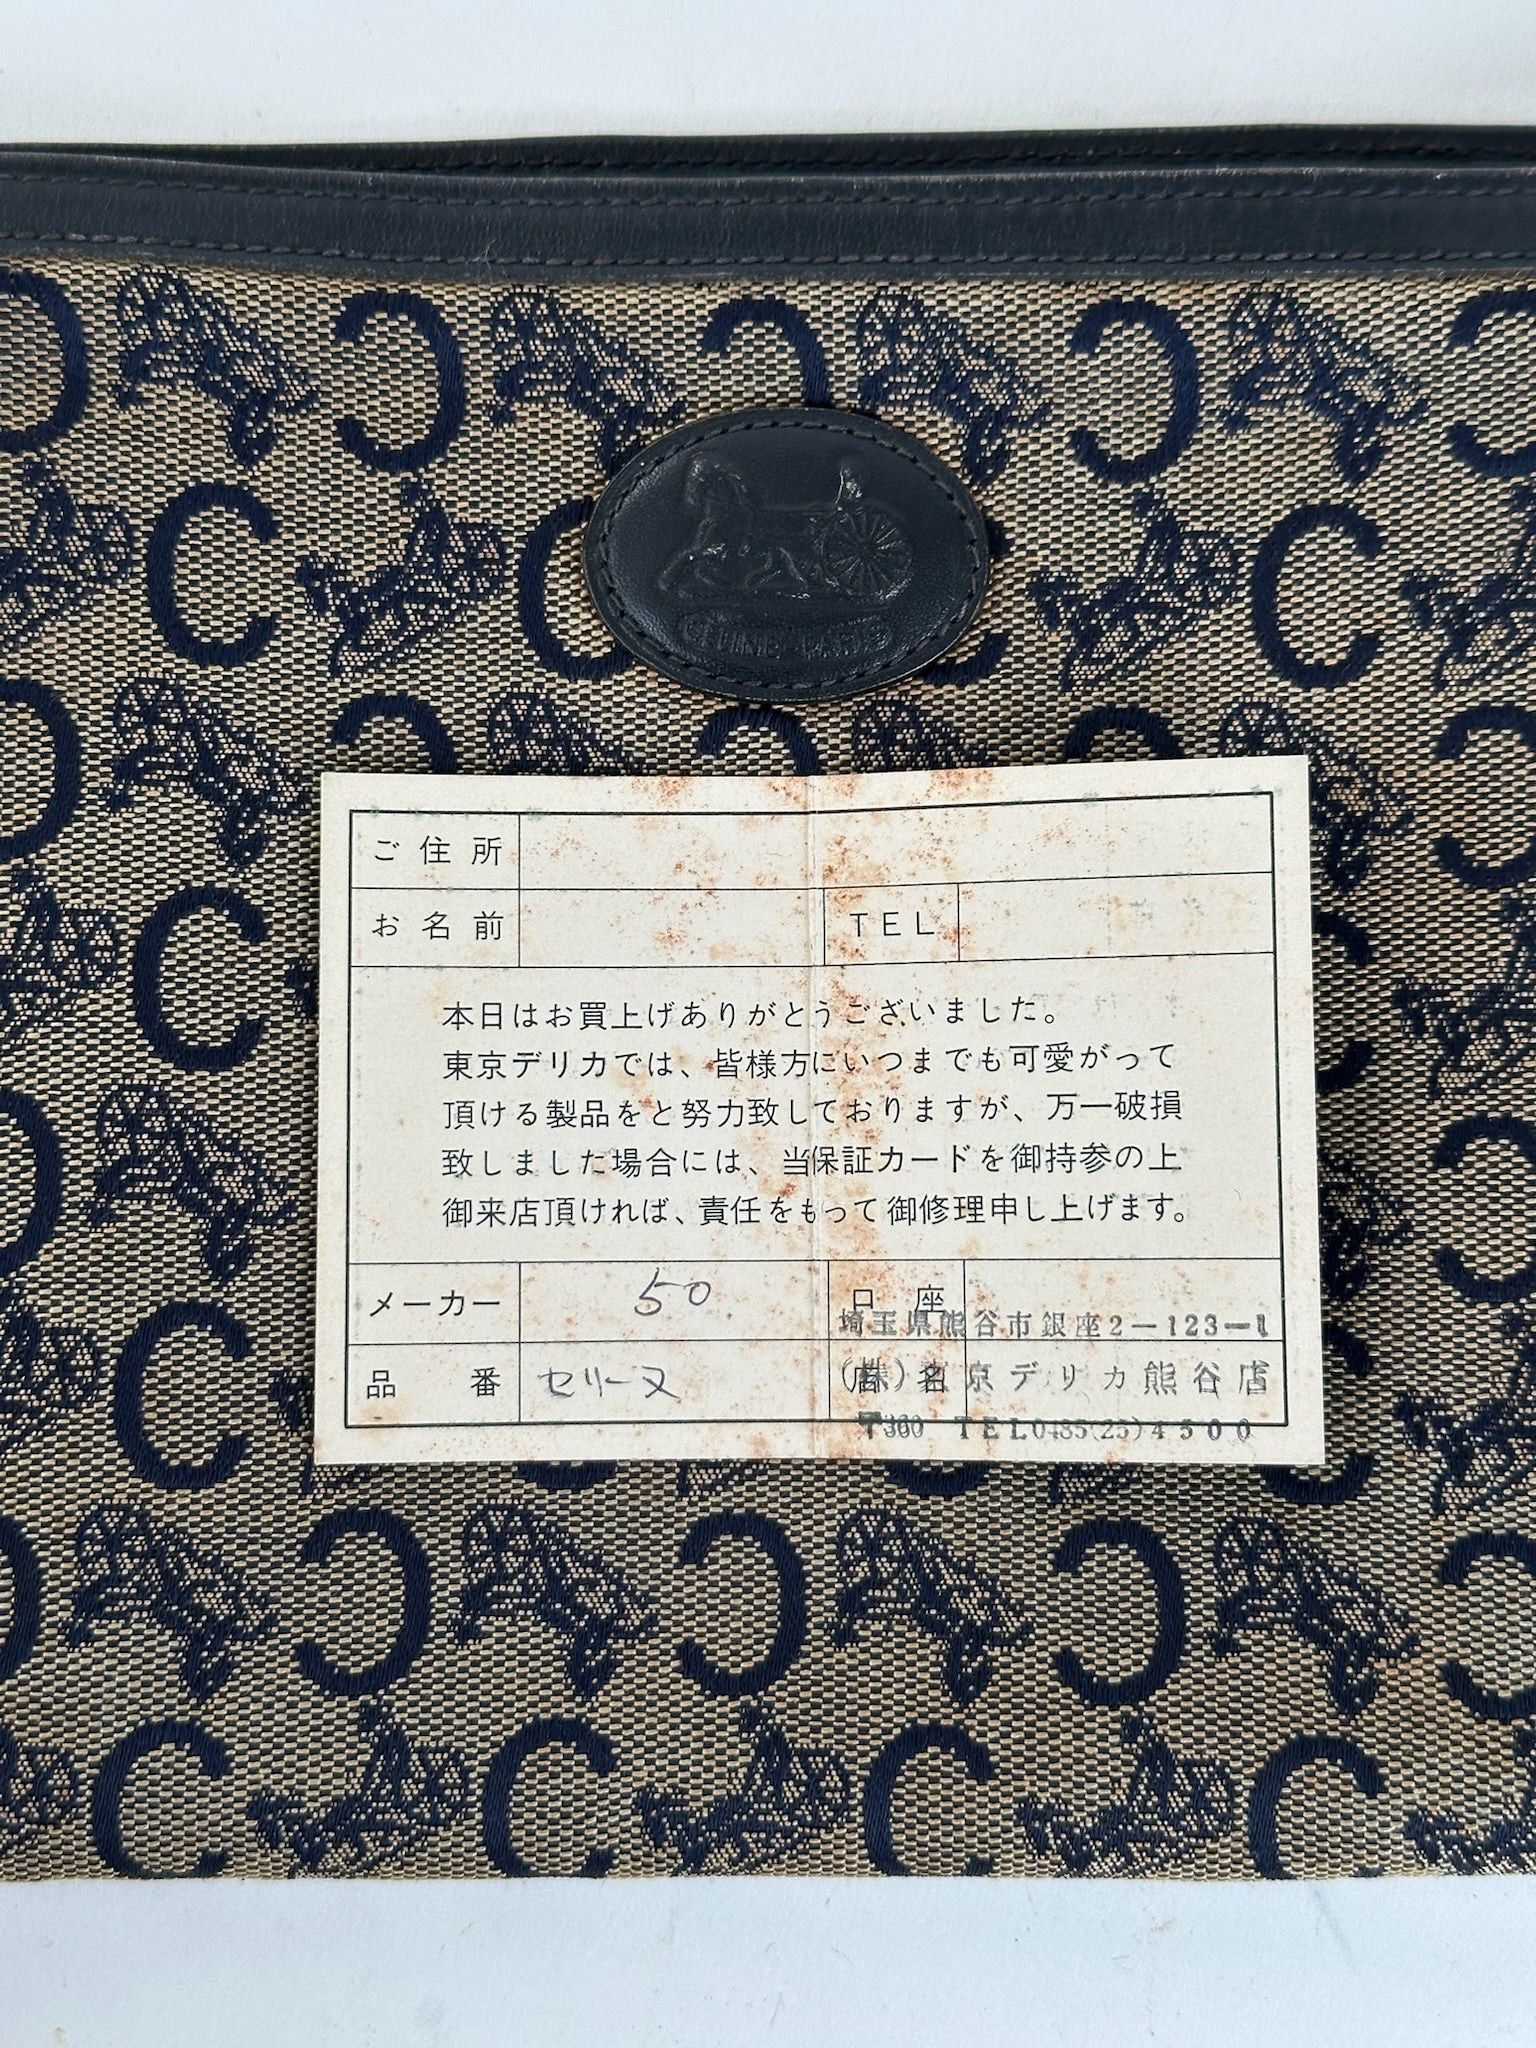 CELINE PARIS
ご住所
お名前 TEL
本日はお買上げありがとうございました。
東京デリカでは、皆様方にいつまでも可愛がって
頂ける製品をと努力致しておりますが、万一破損
致しました場合には、当保証カードを御持参の上
御来店頂ければ、責任をもって御修理申し上げます。
メーカー 50 口座
埼玉県熊谷市銀座2-123-1
品番 セリーヌ 店名
(株)東京デリカ熊谷店
〒360 TEL0485(25)4500